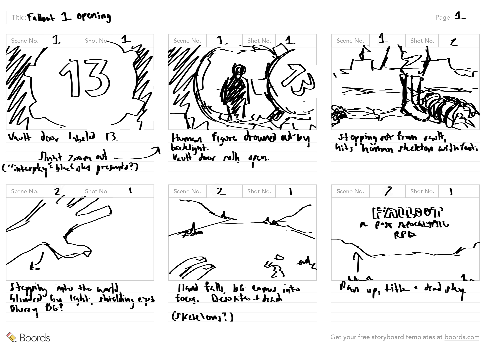 Title: Fallout 1 opening
Page 1
Scene No. 1 Shot No. 1
13
Vault door labeld 13.
slight zoom out
("interplay" black isle presents?)
Scene No. 1 Shot No. 1
13
Human figure drowned out by
backlight.
Vault door rolls open.
Scene No. 1 Shot No. 2
Stepping out from vault,
hits human skeleton with foot.
Scene No. 2 Shot No. 1
Stepping into the world.
Blinded by light, shielding eyes
Blurry BG?
Scene No. 2 Shot No. 1
Hand falls, BG comes into
focus. Desolate + dead
(skeletons?)
Scene No. 2 Shot No. 1
FALLOUT
A POST APOCALYPTIC
RPG
Pan up, title +
Boords
Get your free storyboard templates at boords.com